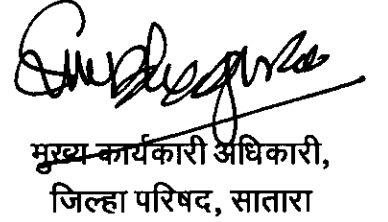 मुख्य कार्यकारी अधिकारी,
जिल्हा परिषद, सातारा